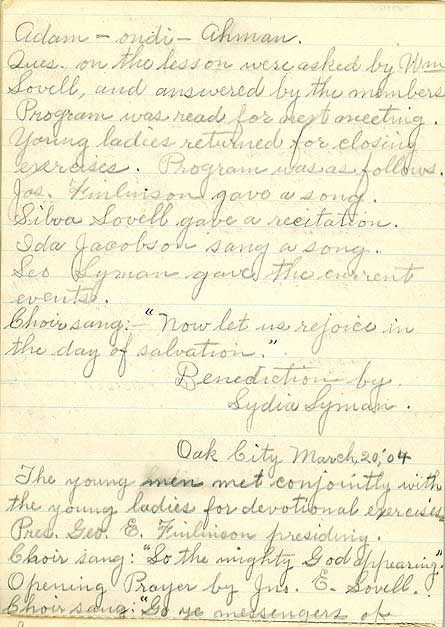 Adam - ondi - Ahman.
Ques. on the lesson were asked by Wm
Lovell, and answered by the members
Program was read for next meeting.
Young ladies returned for closing
exercises. Program was as follows.
Jos. Finlinson gave a song.
Silva Lovell gave a recitation.
Ida Jacobson sang a song.
Leo Lyman gave the current
events.
Choir sang:- "Now let us rejoice in
the day of salvation."
Benediction by
Lydia Lyman.
Oak City March, 20, '04
The young men met conjointly with
the young ladies for devotional exercises
Pres. Geo. E. Finlinson presiding.
Choir sang: "So the mighty God appearing."
Opening Prayer by Jno. E. Lovell.
Choir sang: "Go ye messengers of